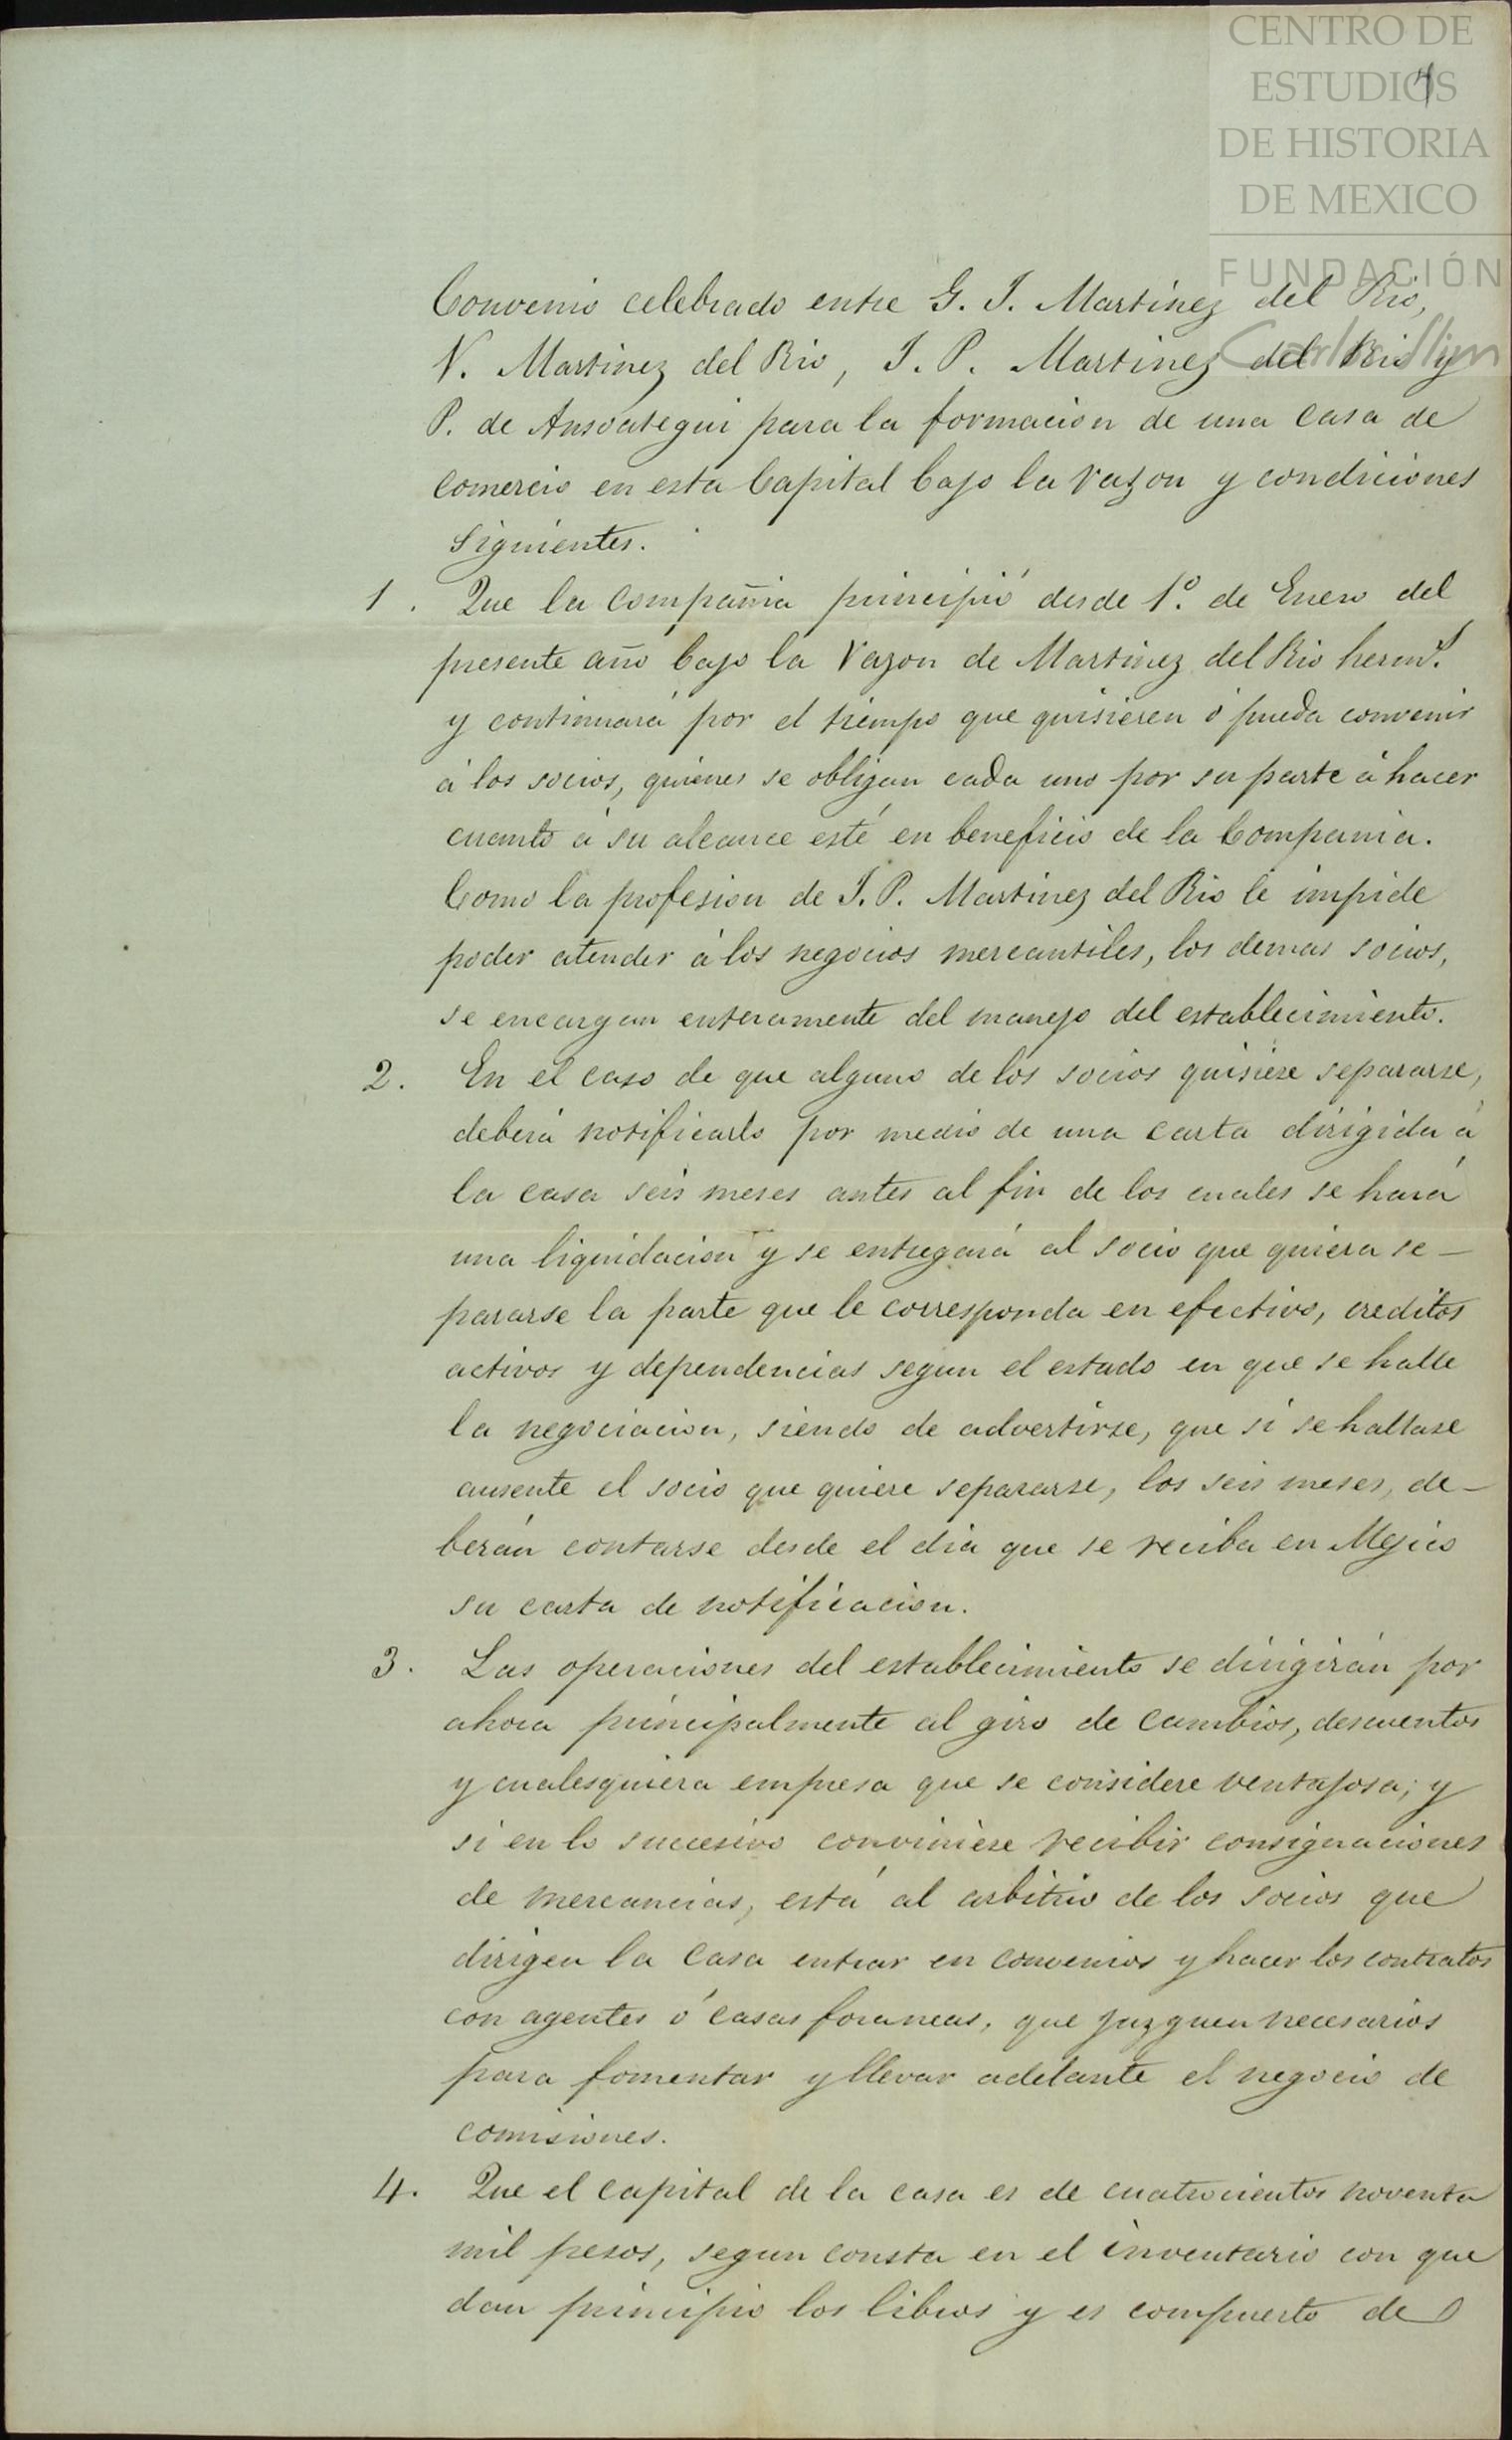 CENTRO DE
ESTUDIOS
DE HISTORIA
DE MEXICO
FUNDACIÓN
Carlos Slim
4
Convenio celebrado entre G. J. Martinez del Rio,
V. Martinez del Rio, J. P. Martinez del Rio y
P. de Ansoategui para la formacion de una casa de
comercio en esta Capital bajo la razon y condiciones
siguientes.
1. Que la compañia principió desde 1º. de Enero del
presente año bajo la razon de Martinez del Rio hermˢ.
y continuará por el tiempo que quisieren ó pueda convenir
á los socios, quienes se obligan cada uno por su parte á hacer
cuanto á su alcance esté en beneficio de la Compania.
Como la profesion de J. P. Martinez del Rio le impide
poder atender á los negocios mercantiles, los demas socios,
se encargan enteramente del manejo del establecimiento.
2. En el caso de que alguno de los socios quisiere separarse,
deberá notificarlo por medio de una carta dirigida á
la casa seis meses antes al fin de los cuales se hará
una liquidacion y se entregará al socio que quiera se-
pararse la parte que le corresponda en efectivo, creditos
activos y dependencias segun el estado en que se halle
la negociacion, siendo de advertirse, que si se hallase
ausente el socio que quiere separarse, los seis meses, de-
berán contarse desde el dia que se reciba en Mejico
su carta de notificacion.
3. Las operaciones del establecimiento se dirigirán por
ahora principalmente al giro de cambios, descuentos
y cualesquiera empresa que se considere ventajosa; y
si en lo succesivo conviniere recibir consignaciones
de mercancias, está al arbitrio de los socios que
dirigen la casa entrar en convenios y hacer los contratos
con agentes ó casas foraneas, que juzguen necesarios
para fomentar y llevar adelante el negocio de
comisiones.
4. Que el capital de la casa es de cuatrocientos noventa
mil pesos, segun consta en el inventario con que
dan principio los libros y es compuesto de